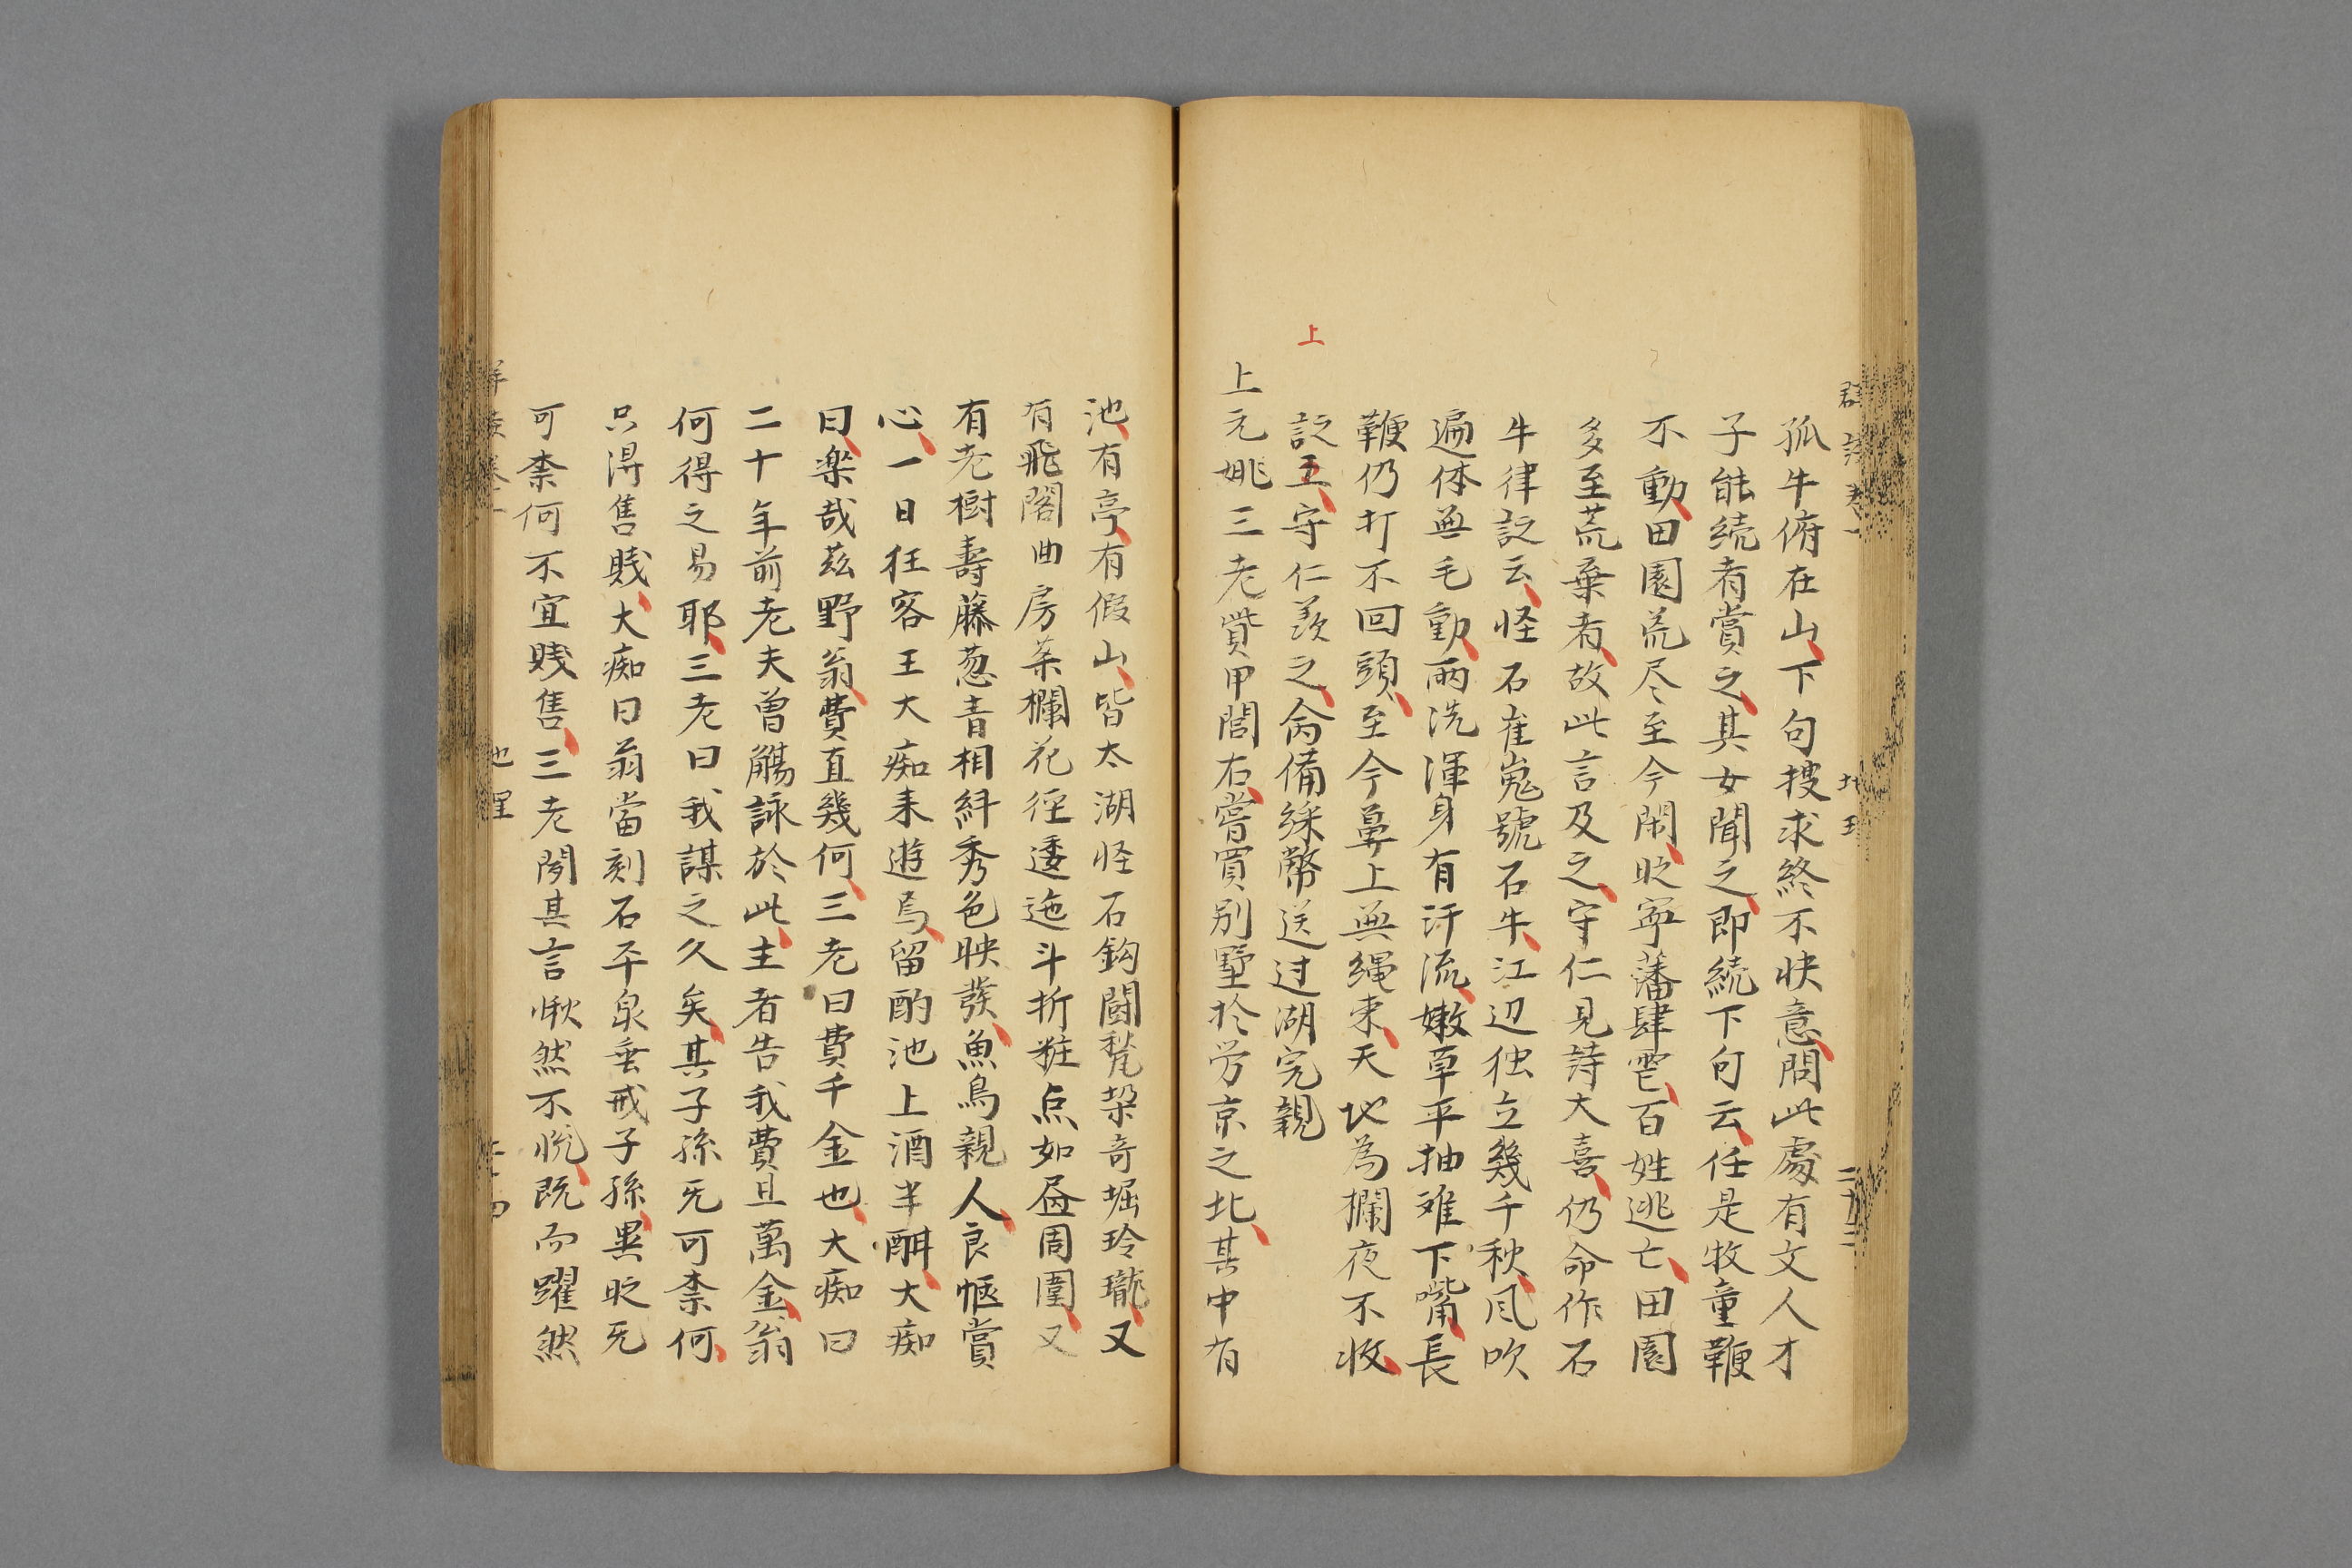 孤牛俯在山下句搜求終不快意問此處有文人才
子能続者賞之其女聞之即続下句云任是牧童鞭
不動田園荒尽至今閑时寧藩肆雹百姓逃亡田園
多至荒棄者故此言及之守仁見詩大喜仍命作石
牛律詩云怪石崔嵬號石牛江辺独立幾千秋风吹
遍体無毛動雨洗渾身有汗流嫩草平抽难下嘴長
鞭仍打不回頭至今鼻上無绳束天地為欄夜不收
上
訖王守仁羨之奩備綵幣送过湖完親
上元姚三老貲甲閭右嘗買別墅於旁京之北其中有
池有亭有假山皆太湖怪石鈎闘甃梁奇堀玲瓏又
有飛閣曲房茶欄花徑逶迤斗折粧点如昼周圍又
有老樹壽藤葱青相糾秀色映發魚鳥親人良惬賞
心一日狂客王大痴来遊焉留酌池上酒半酣大痴
曰楽哉茲野翁費直幾何三老曰費千金也大痴曰
二十年前老夫曽觴詠於此主者告我費且萬金翁
何得之易耶三老曰我謀之久矣其子孫旡可柰何
只淂售賎大痴曰翁當刻石平泉垂戒子孫異时旡
可柰何不宜賎售三老聞其言愀然不悦既而躍然